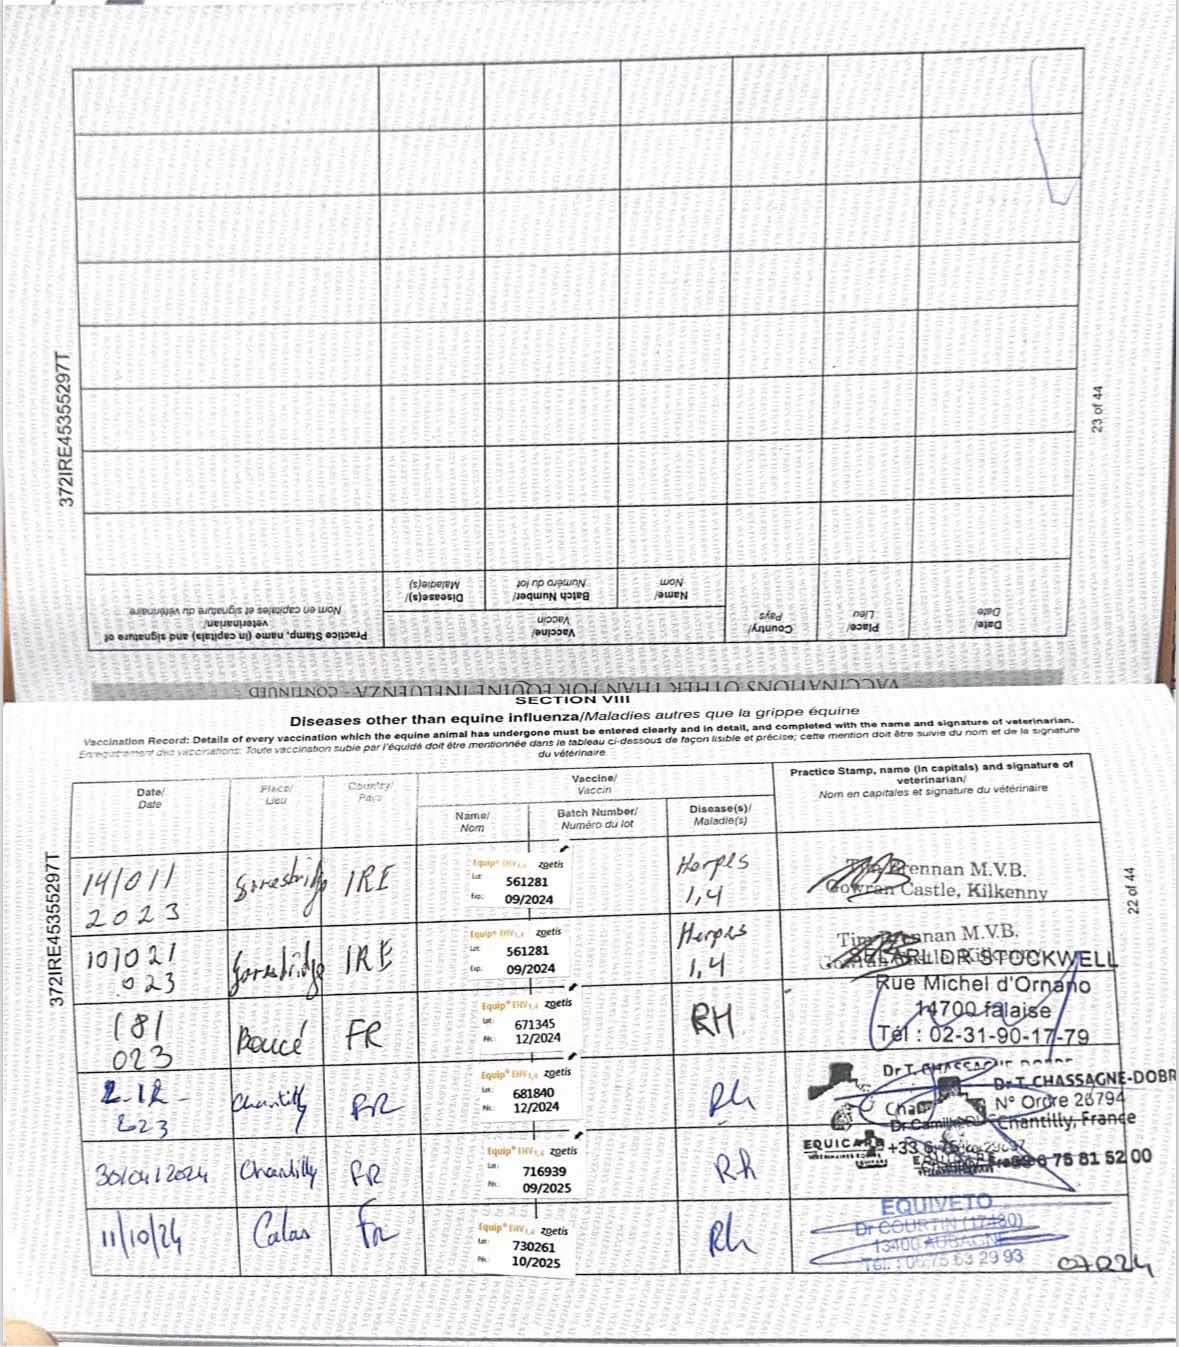 372IRE45355297T
23 of 44
Practice Stamp, name (in capitals) and signature of
veterinarian/
Nom en capitales et signature du vétérinaire
Disease(s)/
Maladie(s)
Batch Number/
Numéro du lot
Name/
Nom
Vaccine/
Vaccin
Country/
Pays
Place/
Lieu
Date/
Date
VACCINATIONS OTHER THAN FOR EQUINE INFLUENZA - CONTINUED
SECTION VIII
Diseases other than equine influenza/Maladies autres que la grippe équine
Vaccination Record: Details of every vaccination which the equine animal has undergone must be entered clearly and in detail, and completed with the name and signature of veterinarian.
Enregistrement des vaccinations: Toute vaccination subie par l'équidé doit être mentionnée dans le tableau ci-dessous de façon lisible et précise; cette mention doit être suivie du nom et de la signature
du vétérinaire
Date/
Date
Place/
Lieu
Country/
Pays
Vaccine/
Vaccin
Name/
Nom
Batch Number/
Numéro du lot
Disease(s)/
Maladie(s)
Practice Stamp, name (in capitals) and signature of
veterinarian/
Nom en capitales et signature du vétérinaire
372IRE45355297T
22 of 44
14/011
2023
Goresbridge
IRE
Equip® EHV1,4 zoetis
Lot: 561281
Exp: 09/2024
Herpes
1,4
Tim Brennan M.V.B.
Gowran Castle, Kilkenny
101021
023
Goresbridge
IRE
Equip® EHV1,4 zoetis
Lot: 561281
Exp: 09/2024
Herpes
1,4
Tim Brennan M.V.B.
Gowran
SELARL DR STOCKWELL
Rue Michel d'Ornano
14700 falaise
Tél : 02-31-90-17-79
181
023
Boucé
FR
Equip® EHV1,4 zoetis
Lot: 671345
12/2024
RH
Chantilly
FR
Equip® EHV1,4 zoetis
Lot: 681840
12/2024
Rh
Dr T. CHASSAGNE-DOBR
N° Ordre 26794
Chantilly, France
Dr Camil
EQUICARE
+33 6 75 81 52 00
30/04/2024
Chantilly
FR
Equip® EHV1,4 zoetis
Lot: 716939
09/2025
Rh
11/10/24
Calas
Fr
Equip® EHV1,4 zoetis
Lot: 730261
10/2025
Rh
EQUIVETO
Dr COURTIN (17480)
13400 AUBAGNE
Tél. : 06 75 63 29 93